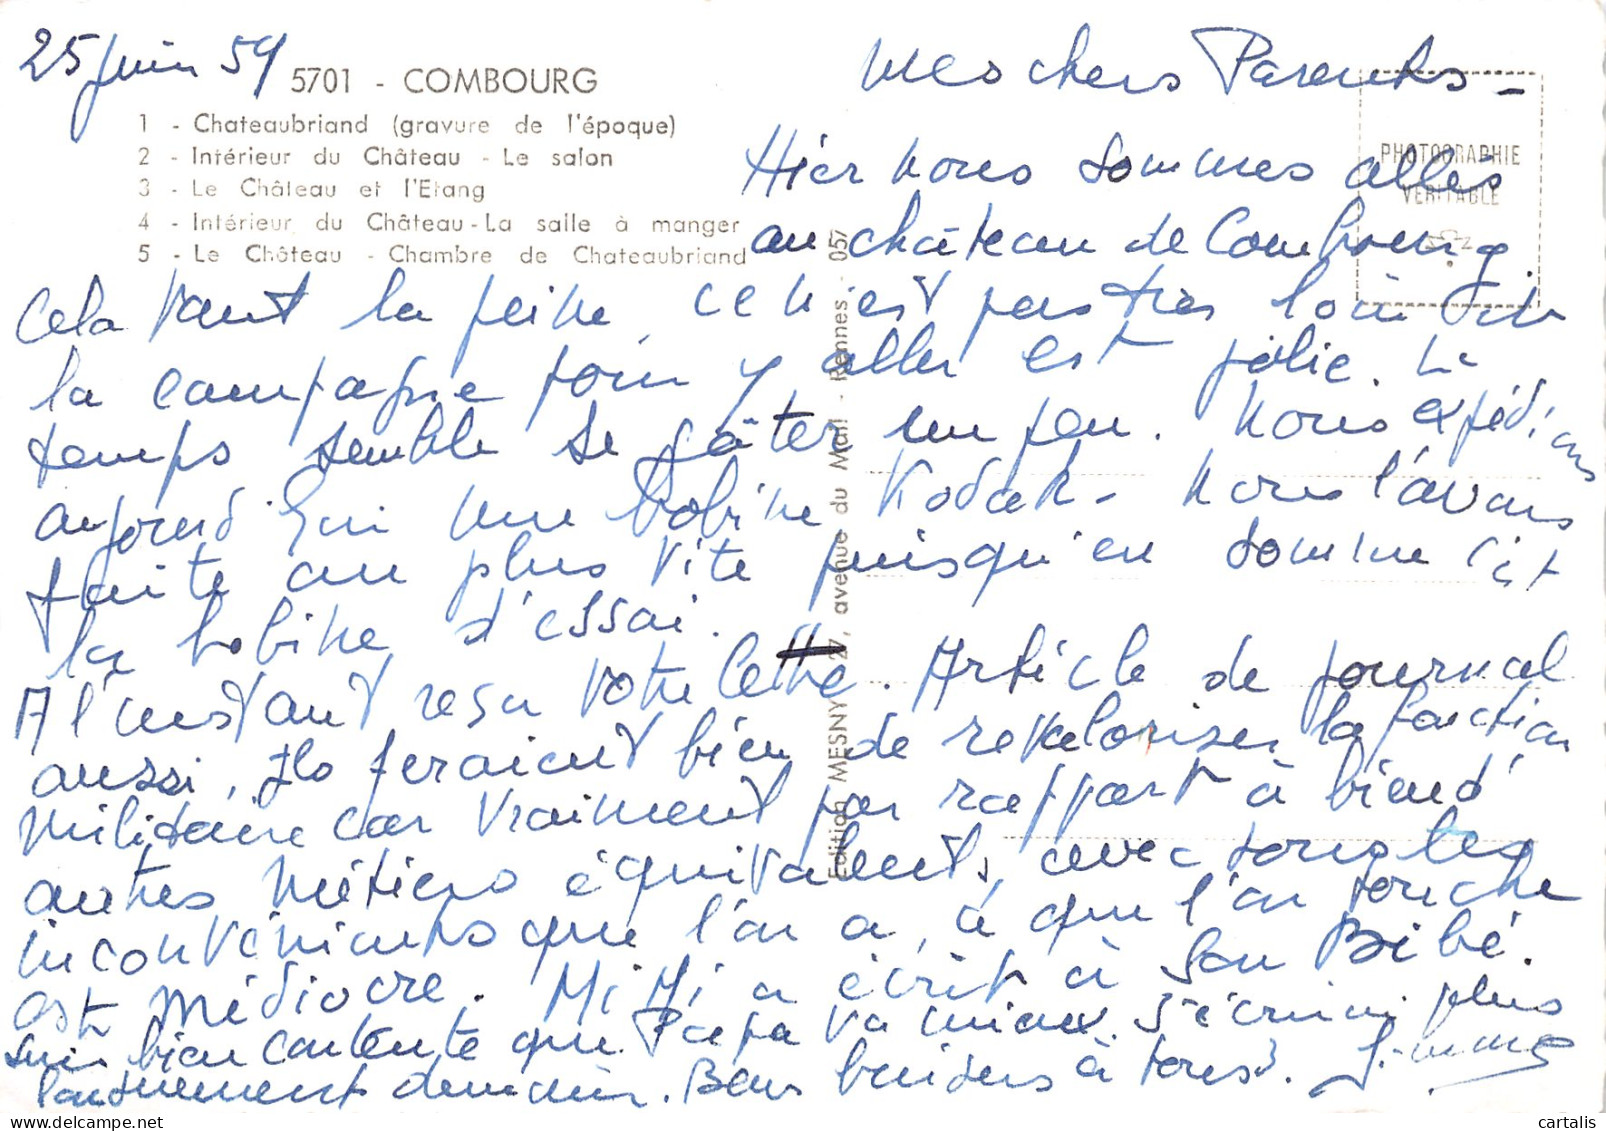 25 juin 59
5701 - COMBOURG
1 - Chateaubriand (gravure de l'époque)
2 - Intérieur du Château - Le salon
3 - Le Château et l'Etang
4 - Intérieur du Château - La salle à manger
5 - Le Château - Chambre de Chateaubriand
Edition MESNY 27, avenue du Mail - Rennes - 057
PHOTOGRAPHIE
VERITABLE
Mes chers Parents -
Hier nous sommes allés
au château de Combourg
Cela vaut la peine, ce n'est pas très loin
la campagne pour y aller est jolie. Le
temps semble se gâter un peu. Nous expédions
aujourd'hui une bobine Kodak - Nous l'avons
faite au plus vite puisqu'en somme c'est
la bobine d'essai.
A l'instant reçu votre lettre. Article de journal
aussi. Ils feraient bien de revaloriser la fonction
militaire car vraiment par rapport à bien d'
autres métiers équivalents, avec tous les
inconvénients que l'on a, ce que l'on touche
est médiocre. Mimi a écrit à son Bibé.
suis bien contente que Papa va mieux. J'écrirai plus
longuement demain. Bons baisers à tous 3.
cartalis